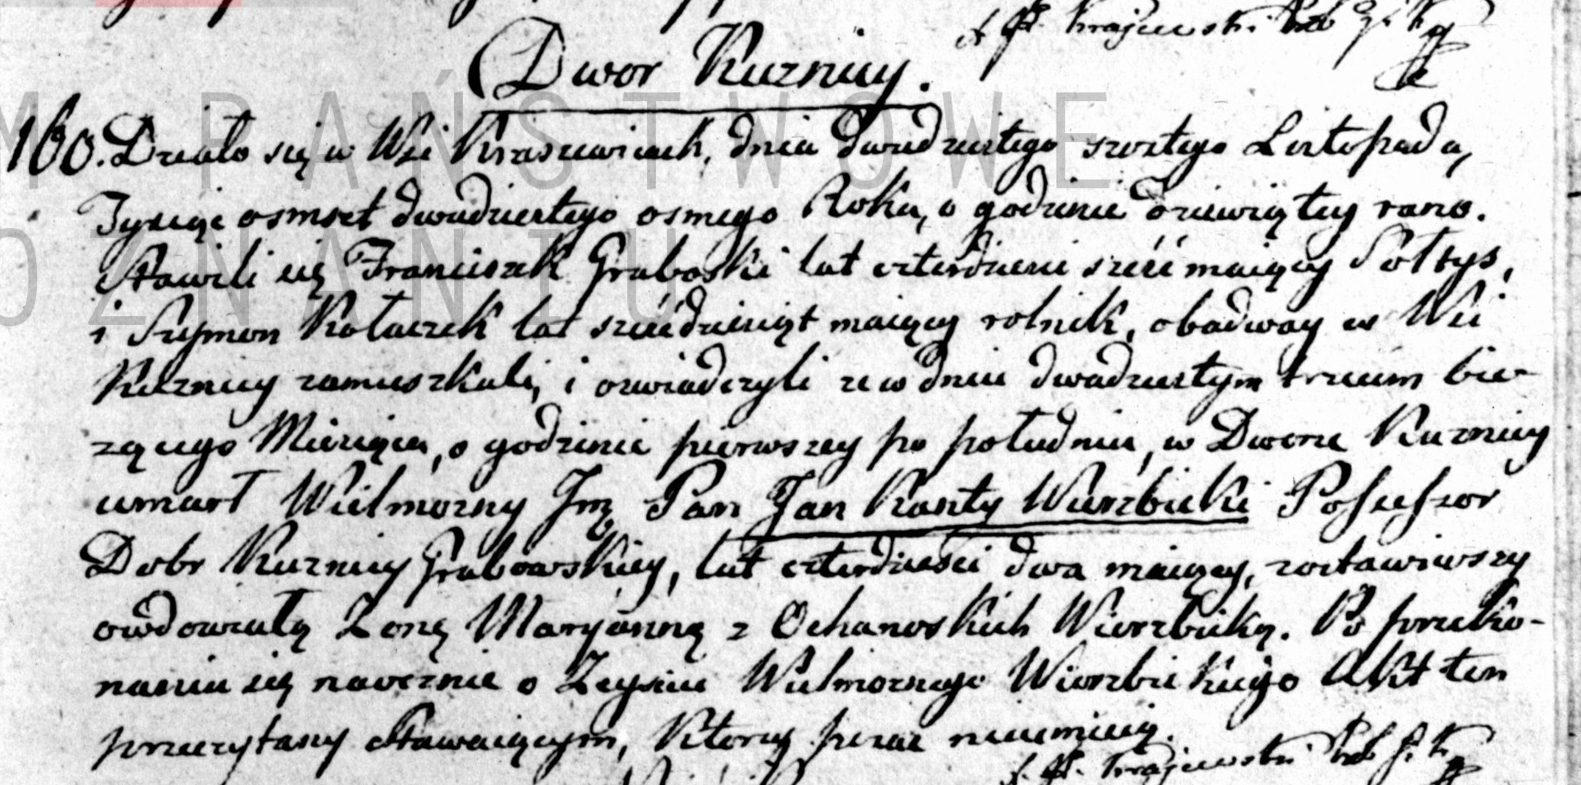 Dwor Kuznicy.
160. Działo się w Wsi Kraszewicach, dnia dwudziestego szostego Listopada,
Tysiąc osmset dwudziestego osmego Roku, o godzinie dziewiątey rano.
Stawili się Franciszek Graboski lat czterdzieści sześć maiący Sołtys,
i Szymon Kołaczek lat sześćdziesiąt maiący rolnik, obadway w Wsi
Kuznicy zamieszkali, i oswiadczyli ze w dniu dwudziestym trzecim bie-
zącego Miesiąca, o godzinie pierwszey po południu, w Dworze Kuznicy
umarł Wielmozny Jmę Pan Jan Kanty Wierzbicki Possessor
Dobr Kuznicy Grabowskiey, lat czterdzieści dwa maiący, zostawiwszy
owdowiałą Zonę Maryannę z Ochanoskich Wierzbicką. Po przeko-
naniu się naocznie o Zeyściu Wielmoznego Wierzbickiego Akt ten
przeczytany stawaiącym, ktorzy pisac nieumieią.
X. Krajewski